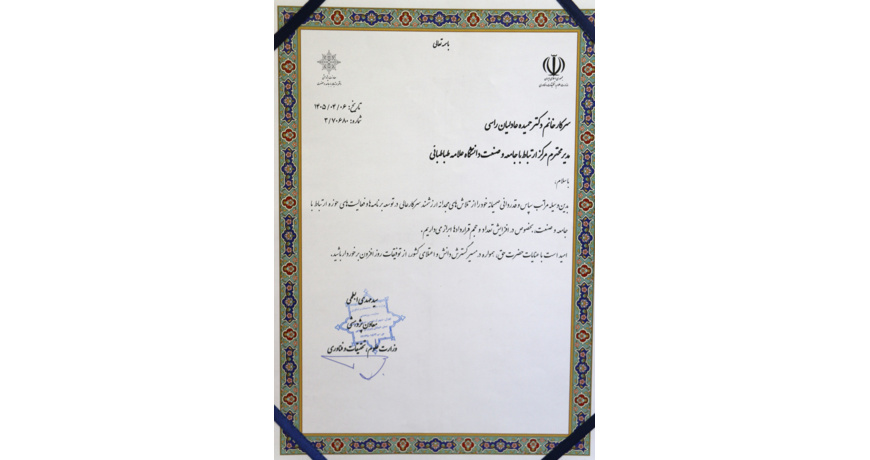 باسمه تعالی
جمهوری اسلامی ایران
وزارت علوم، تحقیقات و فناوری
تاریخ: ۱۴۰۵/۰۲/۰۶
شماره: ۳/۷۰۶۸۰
سرکار خانم دکتر حمیده عادلیان راسی
مدیر محترم مرکز ارتباط با جامعه و صنعت دانشگاه علامه طباطبائی
با سلام،
بدین وسیله مراتب سپاس و قدردانی صمیمانه خود را از تلاش‌های مجدانه ارزشمند سرکارعالی در توسعه برنامه‌ها و فعالیت‌های حوزه ارتباط با
جامعه و صنعت، بخصوص در افزایش تعداد و حجم قراردادها ابراز می‌داریم.
امید است با عنایات حضرت حق، همواره در مسیر گسترش دانش و اعتلای کشور، از توفیقات روزافزون برخوردار باشید.
سیدمهدی ابطحی
معاون پژوهشی
وزارت علوم، تحقیقات و فناوری